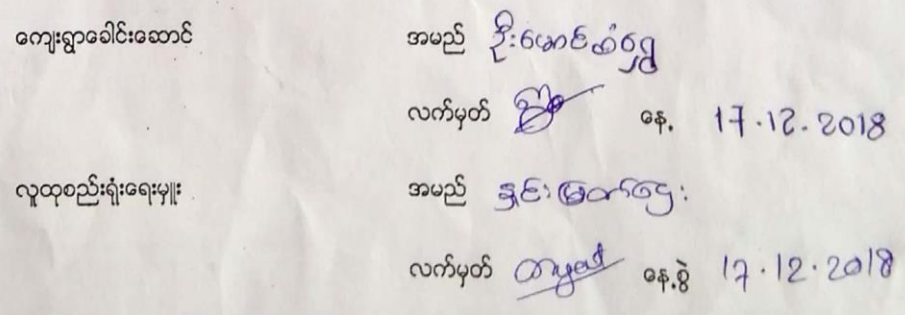 ကျေးရွာခေါင်းဆောင် အမည် ဦးမောင်ထံရွှေ
လက်မှတ် နေ့. 17.12.2018
လူထုစည်းရုံးရေးမှူး အမည် နှင်းမြတ်ဌေး
လက်မှတ် နေ့စွဲ 17.12.2018